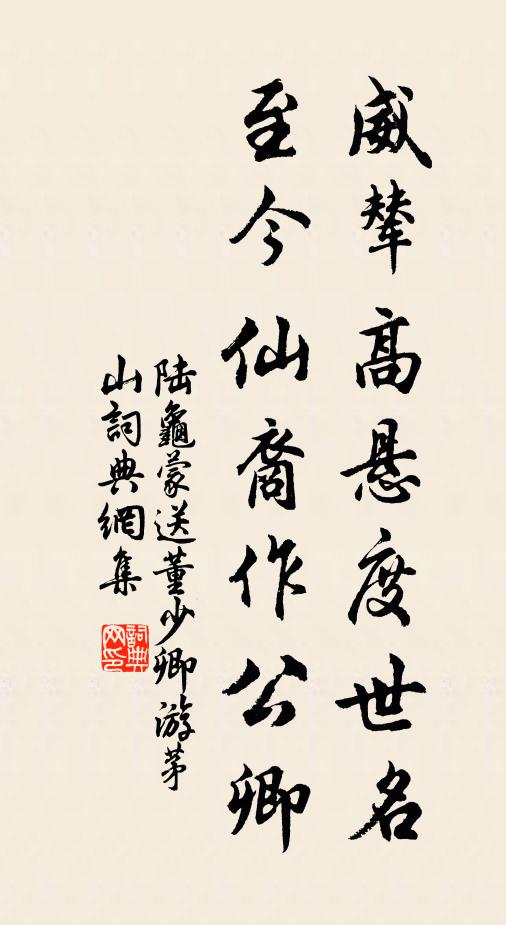 威輦高悬度世名
至今仙裔作公卿
陆龜蒙送董少卿游茅
山詞典網集
詞典
网印